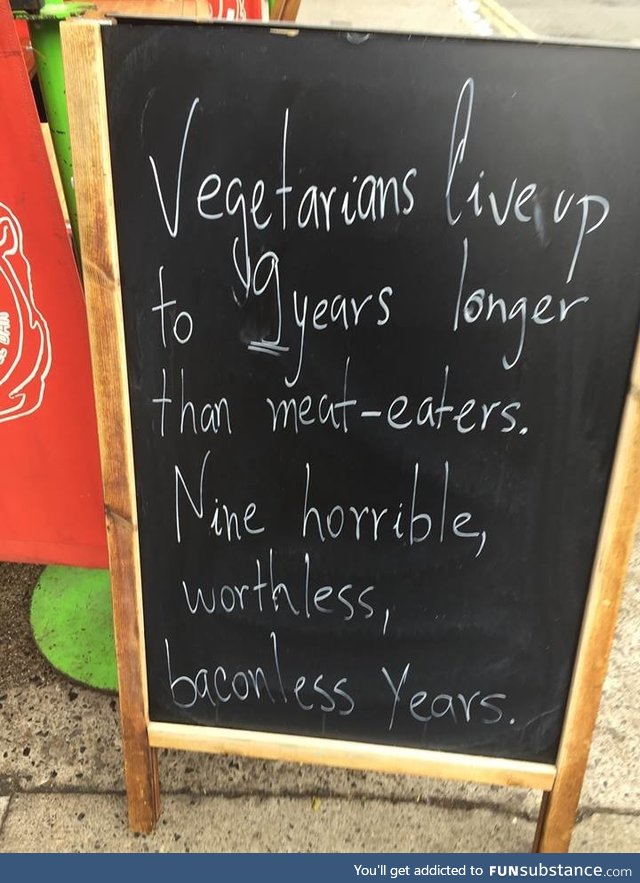 Vegetarians live up
to 9 years longer
than meat-eaters.
Nine horrible,
worthless,
baconless Years.
You'll get addicted to FUNsubstance.com